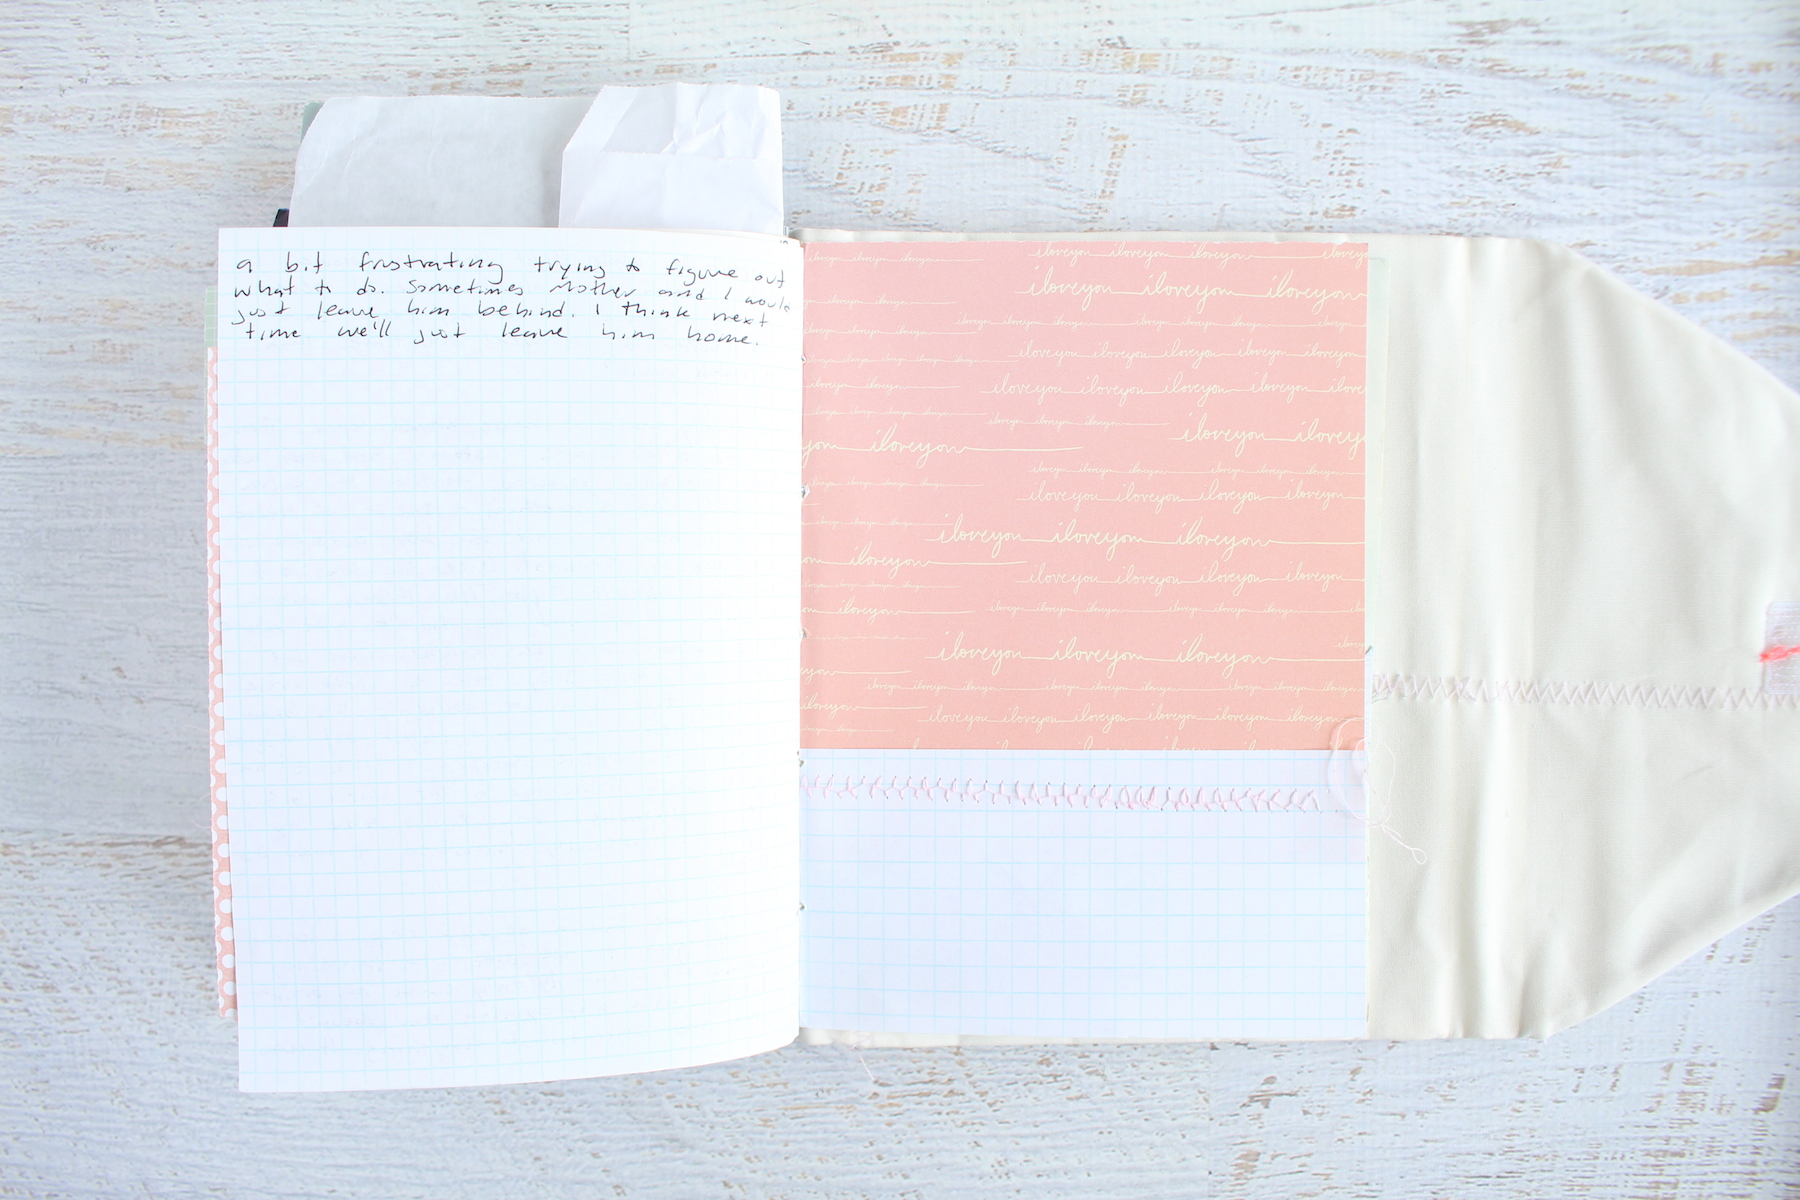 a bit frustrating trying to figure out
what to do. Sometimes Mother and I would
just leave him behind. I think next
time we'll just leave him home.
iloveyou iloveyou iloveyou iloveyou
iloveyou iloveyou iloveyou
iloveyou iloveyou iloveyou iloveyou iloveyou
iloveyou iloveyou iloveyou iloveyou iloveyou
iloveyou iloveyou
iloveyou
iloveyou iloveyou iloveyou iloveyou
iloveyou iloveyou iloveyou
iloveyou
iloveyou iloveyou iloveyou iloveyou
iloveyou
iloveyou iloveyou iloveyou
iloveyou iloveyou iloveyou iloveyou iloveyou iloveyou